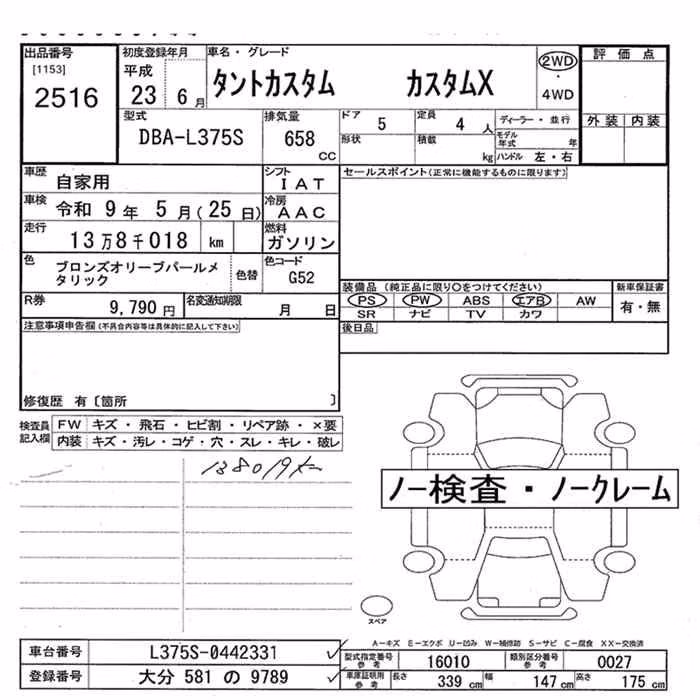 出品番号
[1153]
2516
初度登録年月
平成
23 6月
車名・グレード
タントカスタム カスタムX
2WD
・
4WD
評価点
外装 内装
型式
DBA-L375S
排気量
658
cc
ドア
5
定員
4 人
ディーラー・並行
形状
積載
kg
モデル
年式 年
ハンドル 左・右
車歴
自家用
シフト
IAT
車検
令和 9年 5月(25日)
冷房
AAC
走行
13万8千018 km
燃料
ガソリン
色
ブロンズオリーブパールメ
タリック
色替
色コード
G52
R券
9,790 円
名変通知期限
月 日
セールスポイント(正常に機能するものに限ります)
装備品 (純正品に限り○をつけてください)
PS PW ABS エアB AW
SR ナビ TV カワ
新車保証書
有・無
後日品
注意事項申告欄(不具合内容等は具体的に記入して下さい)
修復歴 有〔箇所 〕
検査員
記入欄
FW キズ・飛石・ヒビ割・リペア跡・×要
内装 キズ・汚レ・コゲ・穴・スレ・キレ・破レ
138019
ノー検査・ノークレーム
スペア
A-キズ E-エクボ U-凹み W-補修跡 S-サビ C-腐食 XX-交換済
車台番号 L375S-0442331
登録番号 大分 581 の 9789
型式指定番号
参考
16010
類別区分番号
参考
0027
車庫証明用
参考
長さ 339 cm 幅 147 cm 高さ 175 cm